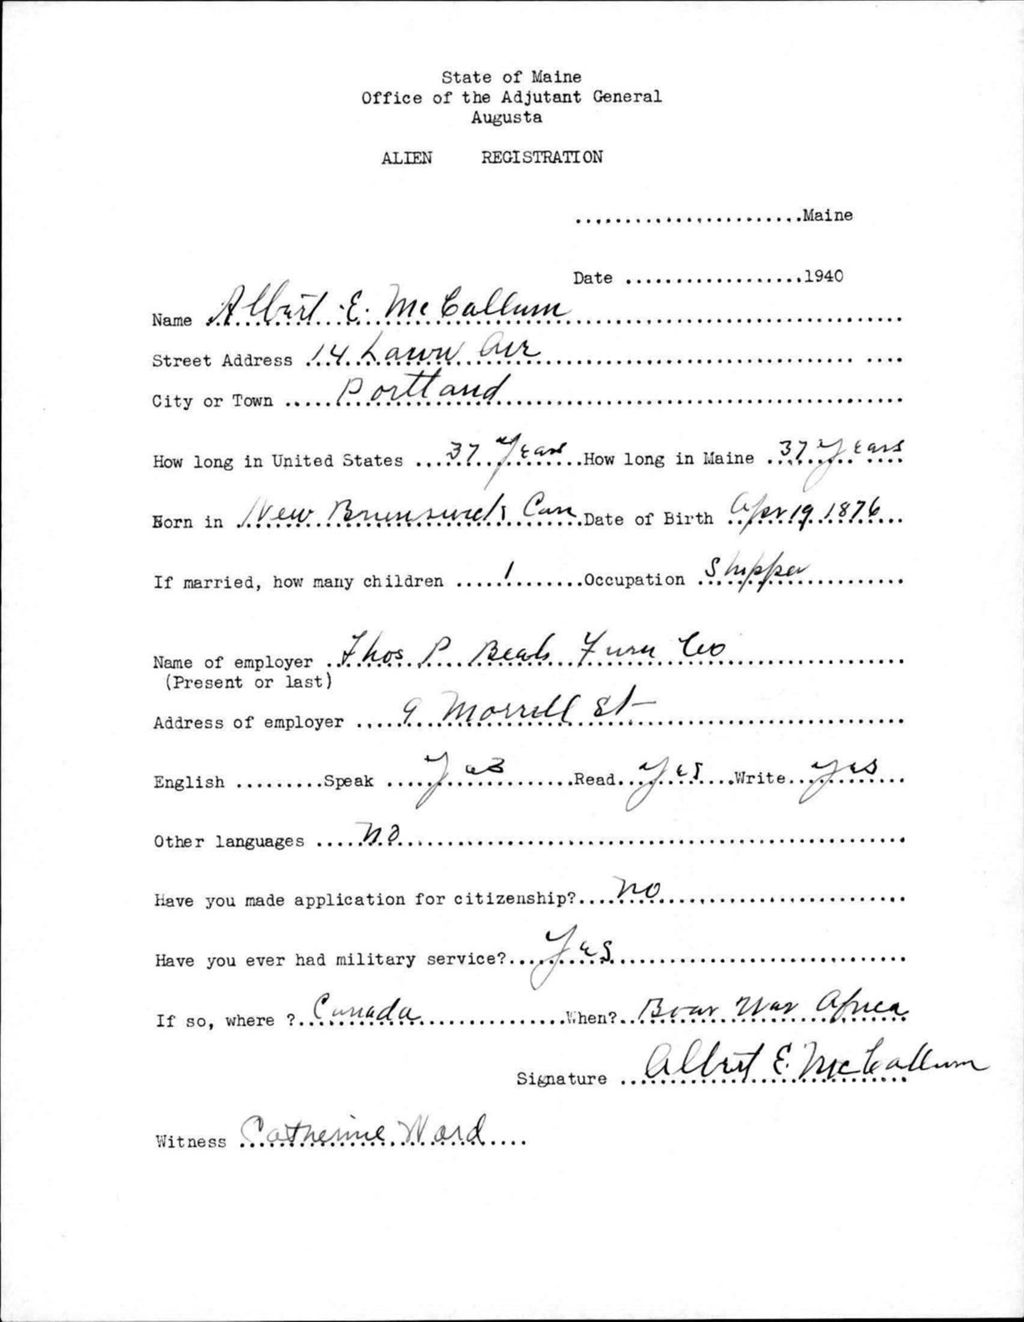 State of Maine
Office of the Adjutant General
Augusta
ALIEN REGISTRATION
.......................Maine
Date ..................1940
Name Albert E. McCallum
Street Address 14 Lawn Ave
City or Town Portland
How long in United States 37 Years How long in Maine 37 Years
Born in New Brunswick Can Date of Birth Apr 19 1876
If married, how many children 1 Occupation Shipper
Name of employer Thos P. Beals Furn Co
(Present or last)
Address of employer 9 Morrill St
English .........Speak Yes Read Yes Write yes
Other languages no
Have you made application for citizenship? no
Have you ever had military service? Yes
If so, where ? Canada When? Boar War Africa
Signature Albert E. McCallum
Witness Catherine Ward